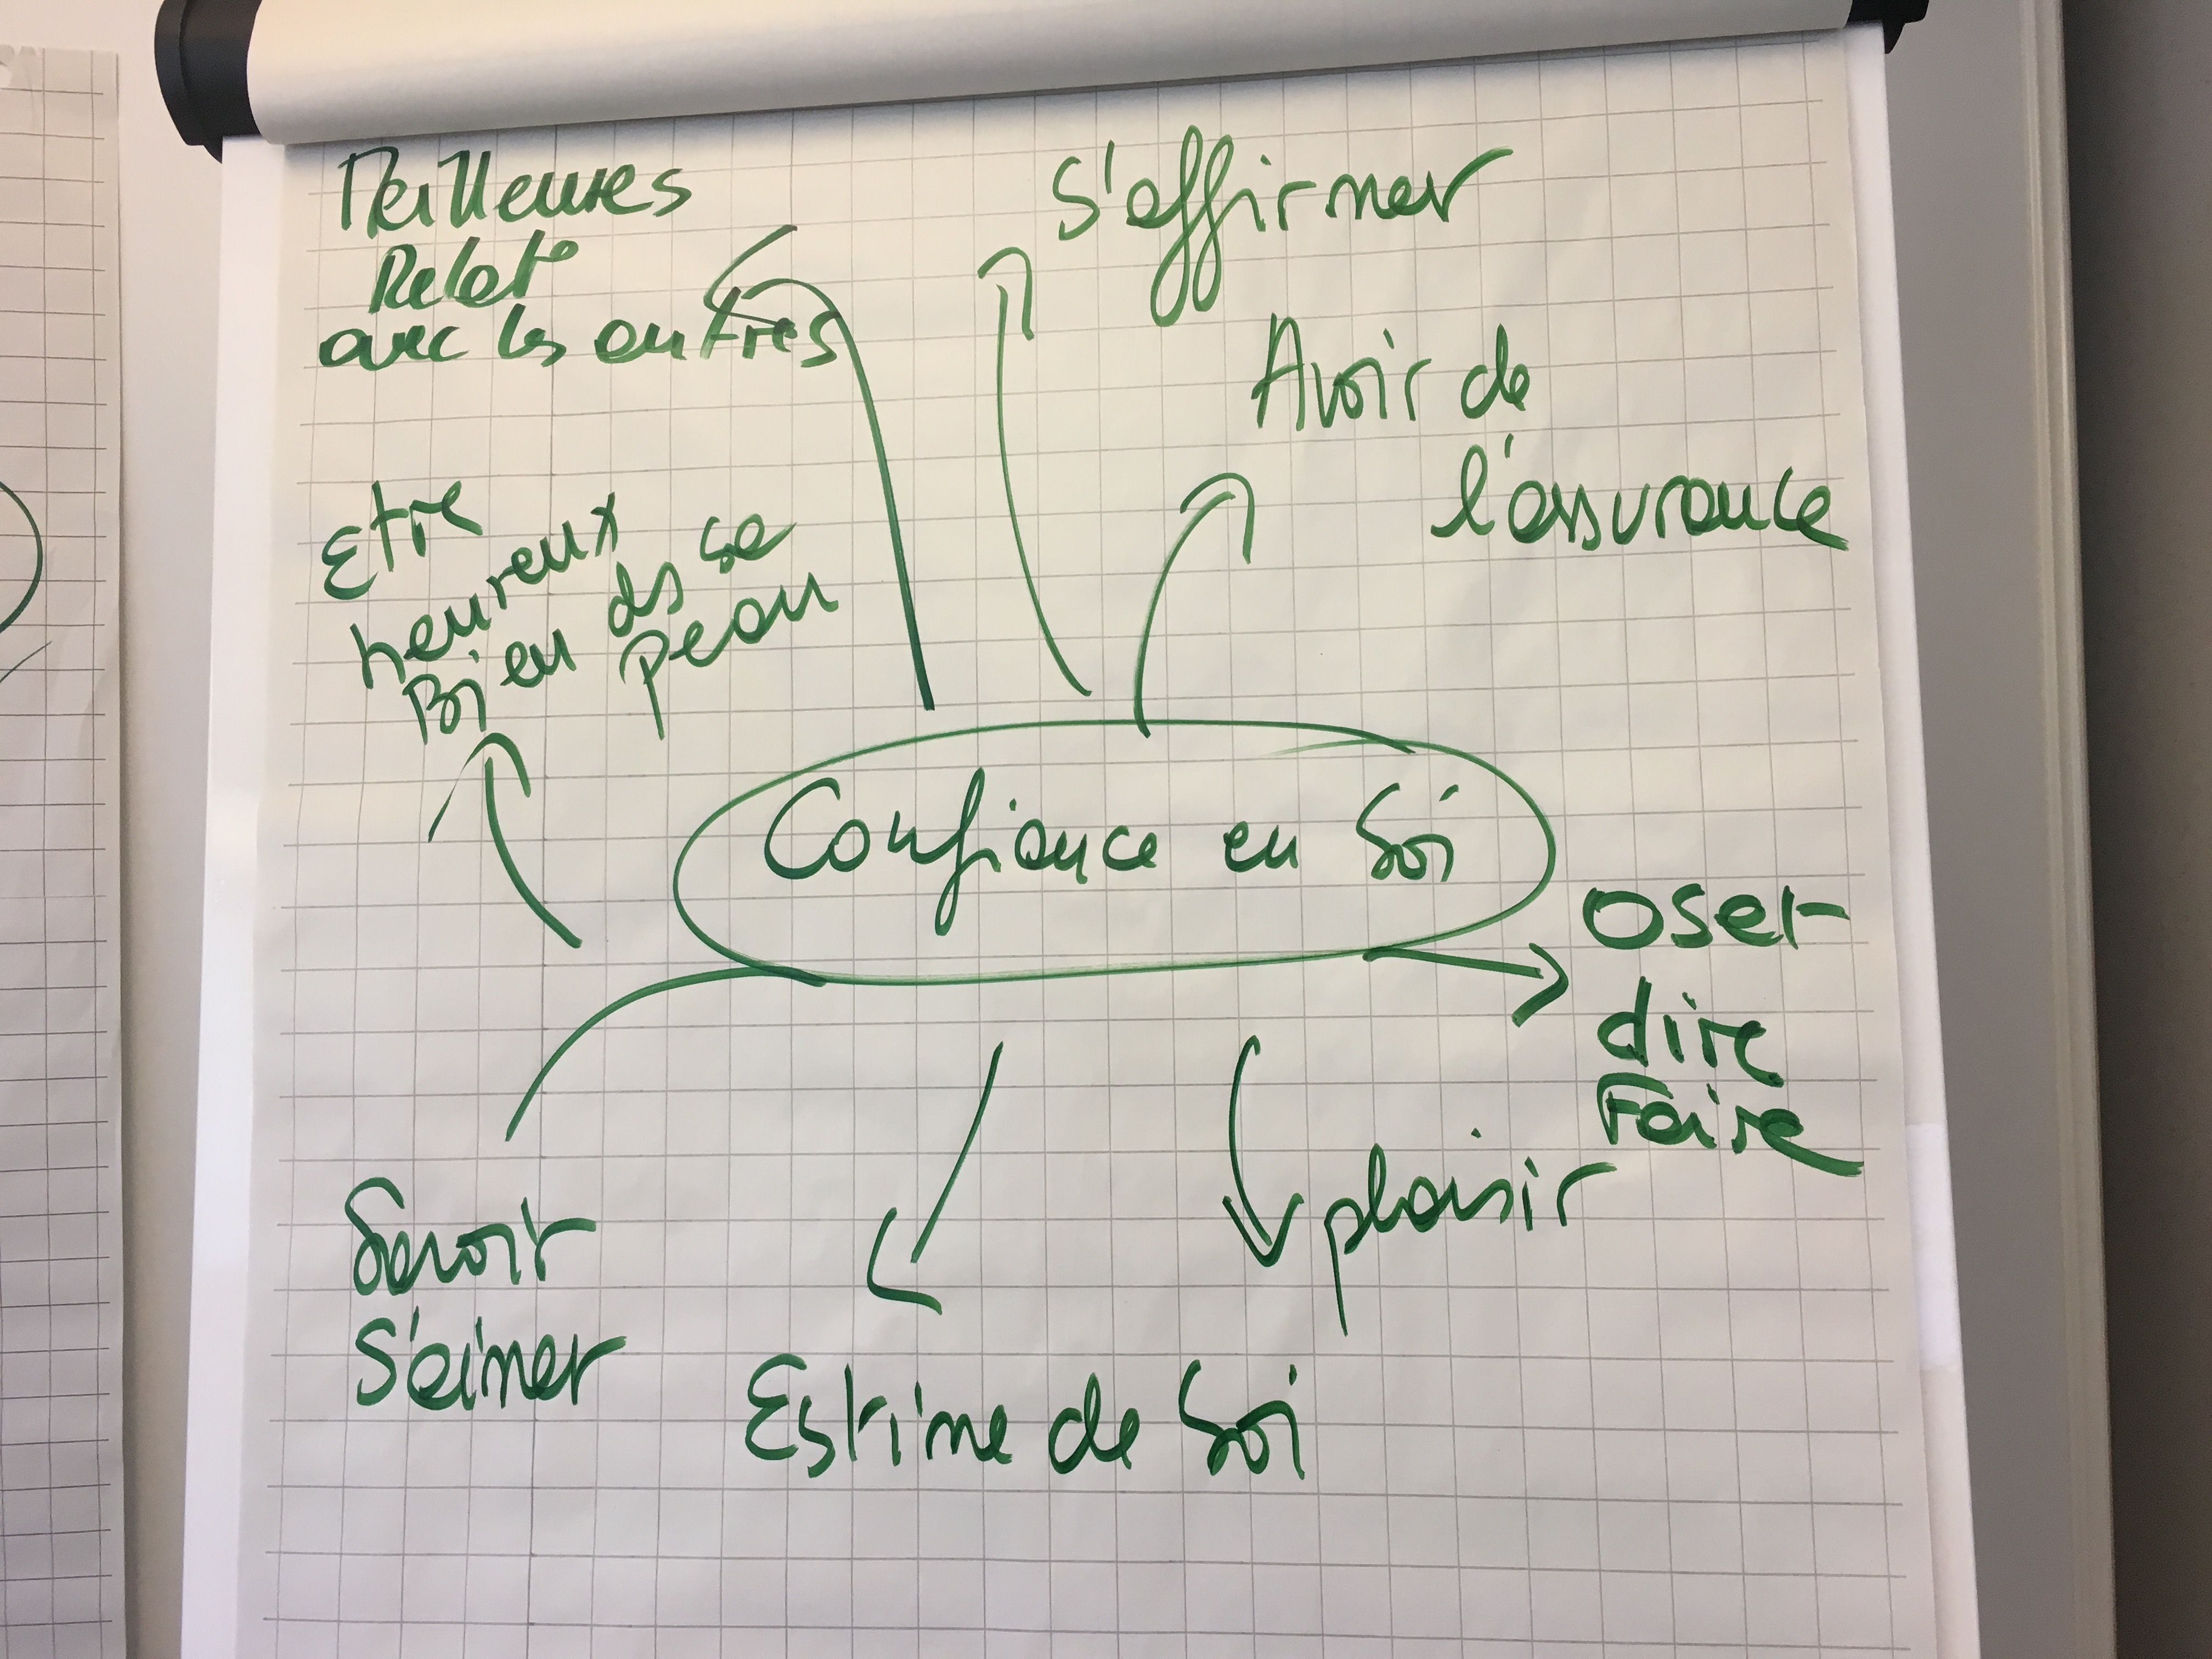 Meilleures
Relat°
avec les autres
S'affirmer
Avoir de
l'assurance
Etre
heureux
Bien ds sa
peau
Confiance en Soi
Oser
dire
Faire
plaisir
Savoir
S'aimer
Estime de Soi